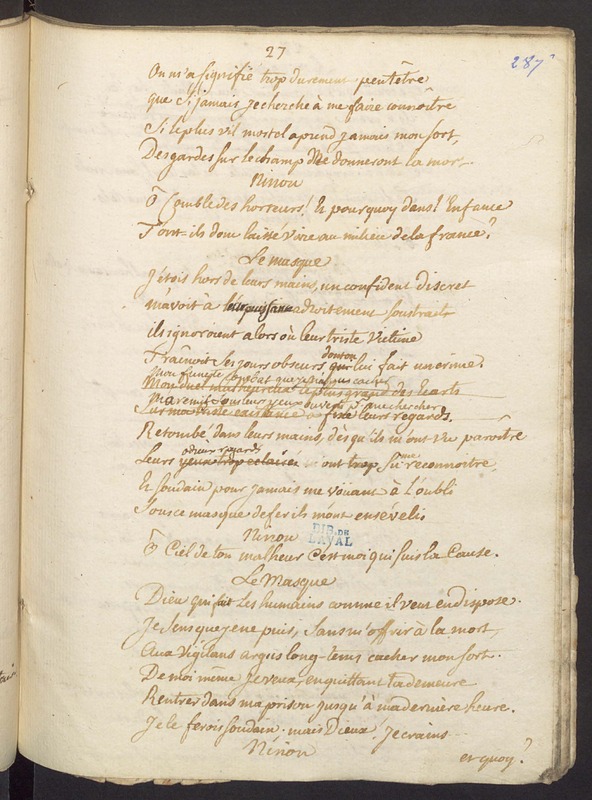 27
287
On m'a signifié trop durement peutêtre
que si jamais je cherche à me faire connoître
Si le plus vil mortel aprend jamais mon sort,
Des gardes sur le champ me donneront la mort.
Ninon
ô Comble des horreurs! Et pourquoy dans l'Enfance
T'ont-ils donc laissé vivre au milieu de la france?
Le masque
J'étois hors de leurs mains, un confident discret
m'avoit à leur puissance adroitement soustrait
ils ignoroient alors où leur triste victime
Traînoit ses jours obscurs dont on lui fait un crime.
Mon funeste combat que je n'ai pu cacher
Mon duel malheureux le plus grand des hearts
M'a remis sous leurs yeux ouverts p. me chercher
Sur ma triste existence a fixé leurs regards.
Retombé dans leurs mains, dès qu'ils m'ont vu parôitre
Leurs odieux regards m'ont trop su me reconnoitre,
yeux trop eclairés
Et soudain pour jamais me vouant à L'oubli
Sous ce masque de fer ils m'ont enséveli
Ninon
BIB. DE LAVAL
ô Ciel de ton malheur c'est moi qui suis la Cause.
Le Masque
Dieu qui fait les humains comme il veut en dispose.
Je sens que je ne puis, sans m'offrir à la mort,
Aux vigilans argus long-tems cacher mon sort.
De moi même je veux, en quittant ta demeure
Rentrer dans ma prison jusqu'à ma derniere heure.
Je le ferois soudain. mais Dieux! je crains...
Ninon
et quoy?